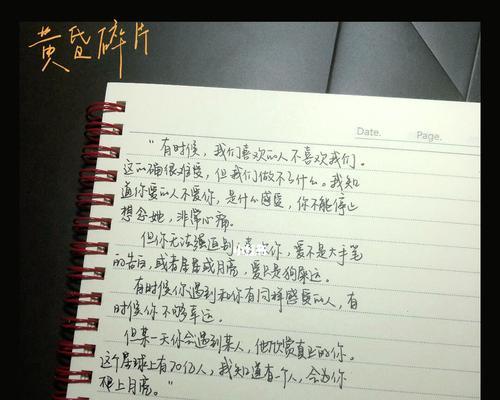 黄昏碎片
Date.
Page.
"有时候，我们喜欢的人不喜欢我们。
这的确很难受，但我们做不了什么。我知
道你爱的人不爱你，是什么感受，你不能停止
想念她，非常心痛。
但你无法强迫别人喜欢你，爱不是大手笔
的告白，或者星星或月亮，爱只是狗屎运。
有时候你遇到和你有同样感受的人，有
时候你不够幸运。
但某一天你会遇到某人，他欣赏真正的你。
这个星球上有70亿人，我知道有一个人，会为你
碰上月亮。"